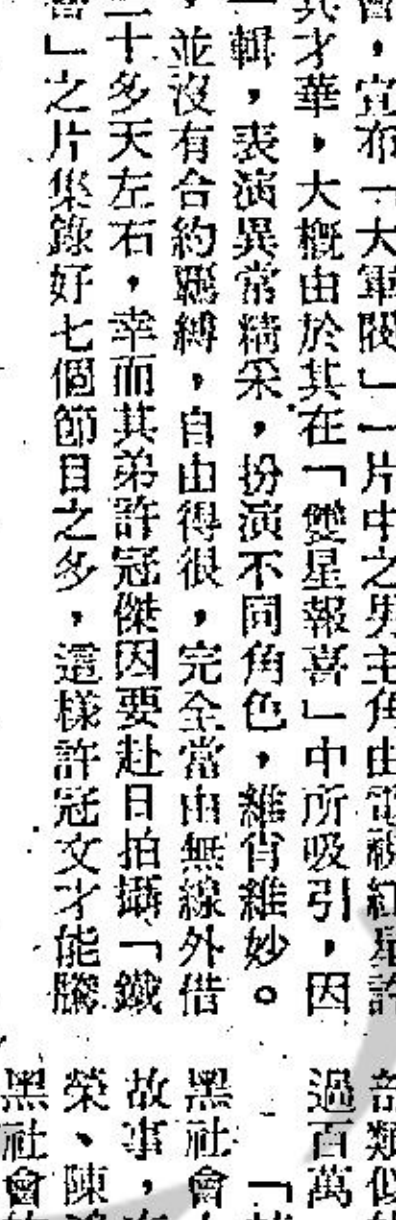 會，宣布「大軍閥」一片中之男主角由電視紅星許
其才華，大概由於其在「雙星報喜」中所吸引，因
一輯，表演異常精采，扮演不同角色，維肖維妙。
，並沒有合約羈縛，自由得很，完全當由無線外借
二十多天左右，幸而其弟許冠傑因要赴日拍攝「鐵
會」之片集錄好七個節目之多，這樣許冠文才能騰
部類似
過百萬
「
黑社會
故事，
榮、陳
黑社會